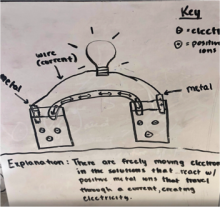 Key
⊖ = elect
⊕ = positive
ions
wire
(current)
metal
metal
Explanation: There are freely moving electron
in the solutions that react w/
positive metal ions that travel
through a current, creating
electricity.